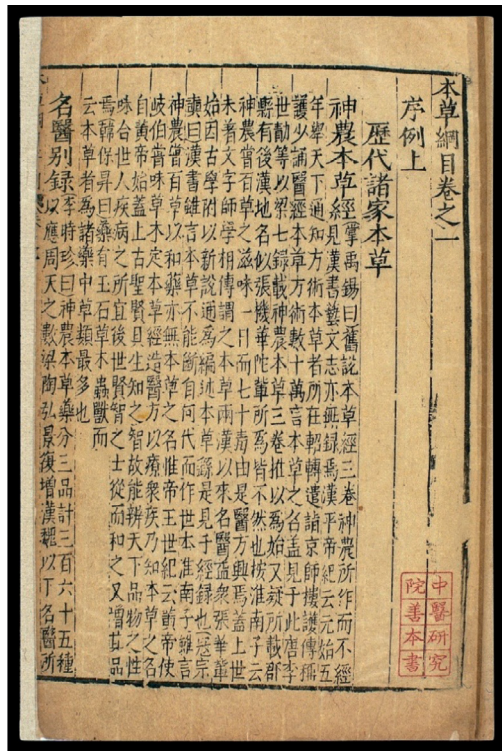 本草綱目卷之一
序例上
歷代諸家本草
神農本草經掌禹錫曰舊說本草經三卷神農所作而不經
見漢書藝文志亦無錄焉漢平帝紀云元始五
年舉天下通知方術本草者所在軺轉遣詣京師樓護傳稱
護少誦醫經本草方術數十萬言本草之名盖見于此唐李
世勣等以梁七録載神農本草三卷推以為始又疑所載郡
縣有後漢地名似張機華陀輩所為皆不然也按淮南子云
神農嘗百草之滋味一日而七十毒由是醫方興焉蓋上世
未著文字師學相傳謂之本草兩漢以來名醫益衆張華輩
始因古學附以新說通為編述本草繇是見于經録也寇宗
奭曰漢書雖言本草不能斷自何代而作世本淮南子雖言
神農嘗百草以和藥亦無本草之名惟帝王世紀云黄帝使
岐伯嘗味草木定本草經造醫方以療衆疾乃知本草之名
自黄帝始蓋上古聖賢具生知之智故能辨天下品物之性
味合世人疾病之所宜後世賢智之士從而和之又增其品
焉韓保昇曰藥有玉石草木蟲獸而
云本草者為諸藥中草類最多也
名醫别録李時珍曰神農本草藥分三品計三百六十五種
以應周天之數梁陶弘景復增漢魏以下名醫所
中醫研究
院善本書